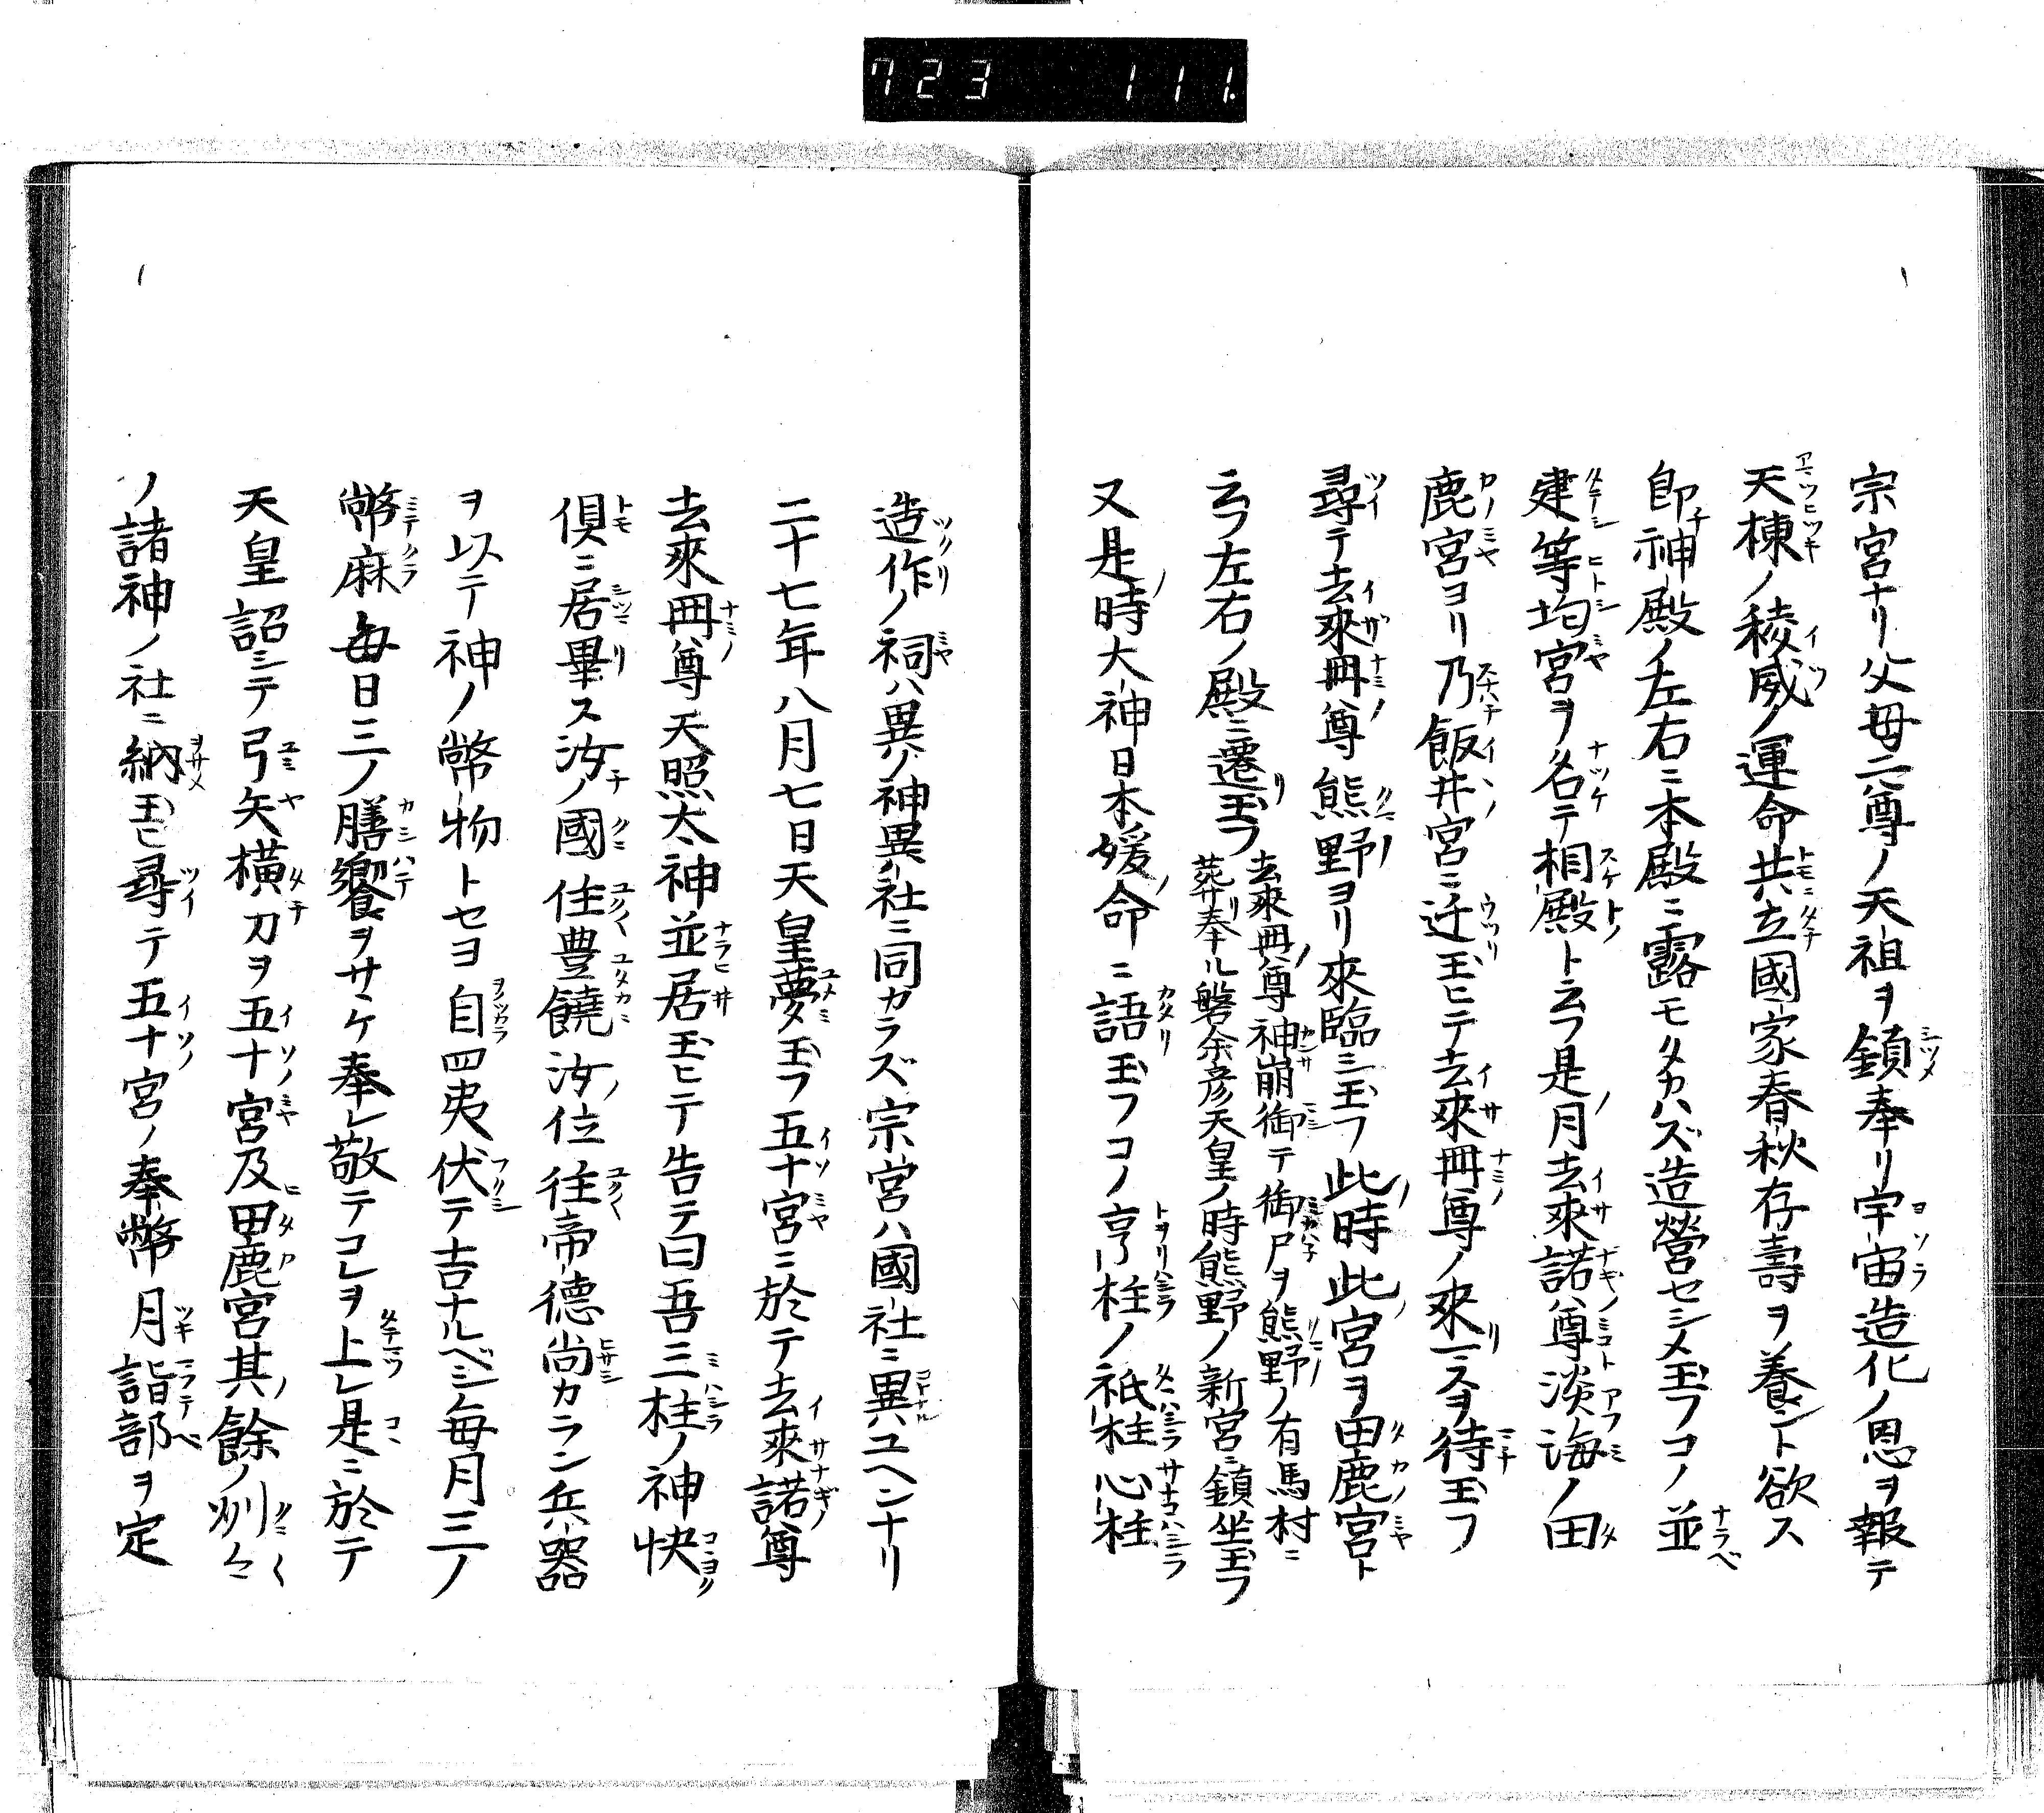 723 111
宗宮ナリ父母二尊ノ天祖ヲ鎮奉リ宇宙造化ノ恩ヲ報テ
天棟ノ稜威ノ運命共立國家春秋存壽ヲ養ント欲ス
即神殿ノ左右ニ本殿ニ露モタカハズ造營セシメ玉フコノ並
建等均宮ヲ名テ相殿ト云フ是月去來諾尊淡海ノ田
鹿宮ヨリ乃飯井宮ニ迁玉ヒテ去來冊尊ノ來ヲ待玉フ
尋テ去來冊尊熊野ヨリ來臨玉フ此時此宮ヲ田鹿宮ト
云フ左右ノ殿ニ遷玉フ
去來冊尊神崩御テ御尸ヲ熊野ノ有馬村ニ
葬奉ル磐余彦天皇ノ時熊野ノ新宮ニ鎮坐玉フ
又是時大神日本媛命ニ語玉フコノ亨柱ノ祇柱心柱
造作ノ祠ハ異ノ神異社ニ同カラズ宗宮ハ國社ニ異ユヘンナリ
二十七年八月七日天皇夢玉フ五十宮ニ於テ去來諾尊
去來冊尊天照太神並居玉ヒテ告テ曰吾三柱ノ神快
倶ニ居畢ス汝ノ國住豊饒汝位往帝德尚カラン兵器
ヲ以テ神ノ幣物トセヨ自四夷伏テ吉ナルベシ毎月三ノ
幣麻毎日三ノ膳饗ヲサヽケ奉レ敬テコレヲ上レ是ニ於テ
天皇詔シテ弓矢横刀ヲ五十宮及田鹿宮其餘ノ州々
ノ諸神ノ社ニ納玉ヒ尋テ五十宮ノ奉幣月詣部ヲ定